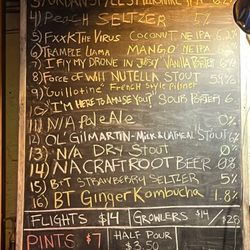 4) PEACH SELTZER 5%
5) FXXK THE VIRUS COCONUT NE IPA 6.2
6) TRAMPLE LLAMA MANGO NEIPA
7) I FLY MY DRONE IN JUST VANILLA PORTER 6%
8) FORCE OF WILL NUTELLA STOUT 5%
9) Guillotine French Style Pilsner
10) "I'M HERE TO AMUSE YOU" SOUR PORTER 6
11) N/A Pale Ale 0%
12) OL' GILMARTIN - MILK & OATMEAL STOUT
13) N/A DRY STOUT 0%
14) NA CRAFT ROOT BEER 0%
15) BT STRAWBERRY SELTZER 5%
16) BT Ginger Kombucha 1.8%
FLIGHTS $14 GROWLERS $14/$28
PINTS $7 HALF POUR $3.50